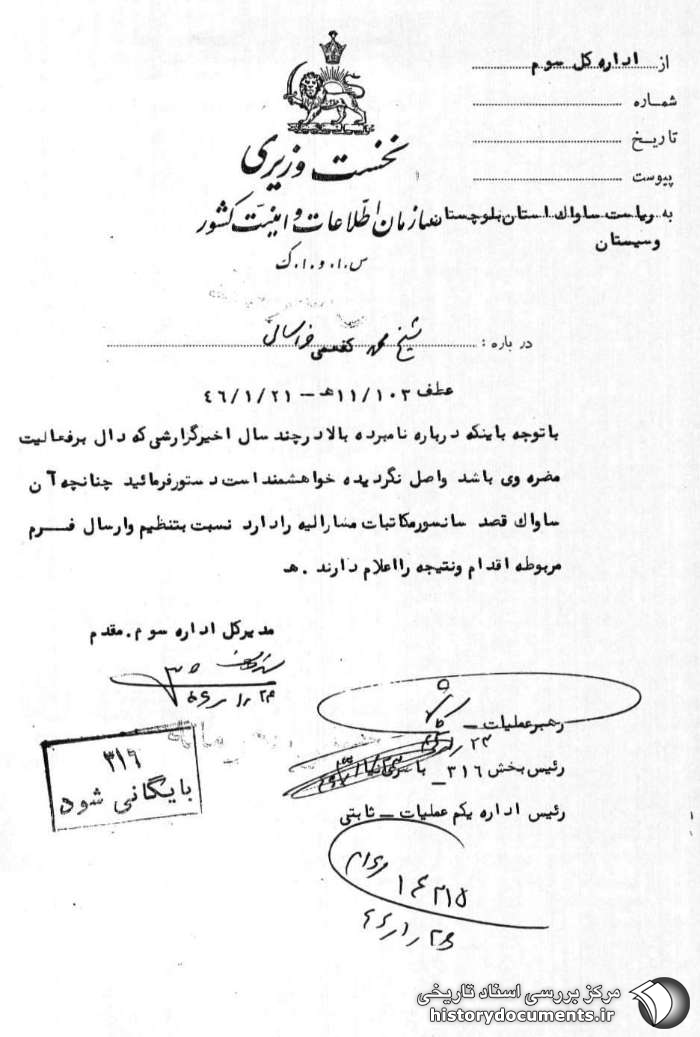 از اداره کل سوم
شماره
تاریخ
پیوست
نخست وزیری
سازمان اطلاعات و امنیت کشور
س.ا.و.ا.ک
به ریاست ساواک استان بلوچستان
و سیستان
درباره: شیخ محمد کفعمی خراسانی
عطف ۱۱/۱۰۳ھ – ۴۶/۱/۲۱
باتوجه باینکه درباره نامبرده بالا درچند سال اخیرگزارشی که دال برفعالیت
مضره وی باشد واصل نگردیده خواهشمند است دستورفرمائید چنانچه آن
ساواک قصد سانسورمکاتبات مشارالیه رادارد نسبت بتنظیم وارسال فرم
مربوطه اقدام ونتیجه رااعلام دارند .ھ
مدیرکل اداره سوم.مقدم
رهبرعملیات –
رئیس بخش ۳۱۶ –
رئیس اداره یکم عملیات – ثابتی
۳۱۶
بایگانی شود
مرکز بررسی اسناد تاریخی
historydocuments.ir